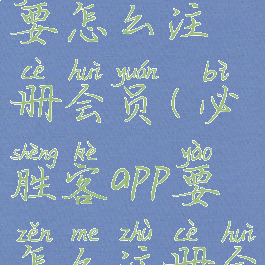 要怎么注
cè huì yuán bì
册会员(必
shèng kè yào
胜客app要
zěn me zhù cè huì
怎么注册会